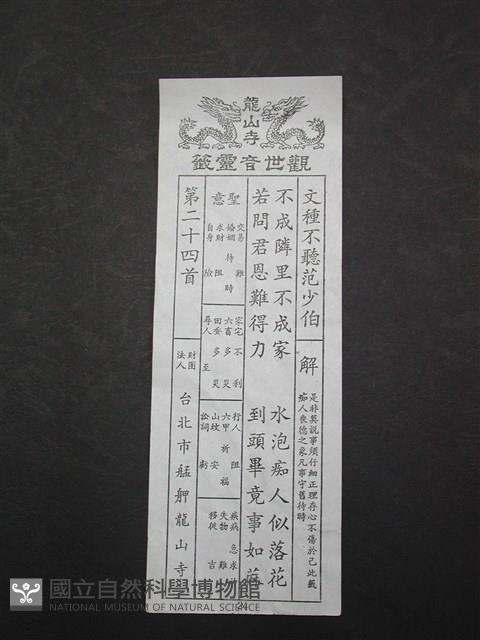 龍山寺
觀世音靈籤
文種不聽范少伯
解
是非莫說事須仔細正理存心不傷於己此籤
痴人喪德之象凡事守舊待時
不成隣里不成家　水泡痴人似落花
若問君恩難得力　到頭畢竟事如
聖意
交易 難
婚姻 待時
求財 阻
自身 險
家宅 不利
六畜 多災
田蚕 多災
尋人 至
行人 阻
六甲 祈福
山墳 安
訟詞 虧
疾病 急求
失物 難
移徙 吉
第二十四首
財團法人 台北市艋舺龍山寺
24
國立自然科學博物館
NATIONAL MUSEUM OF NATURAL SCIENCE